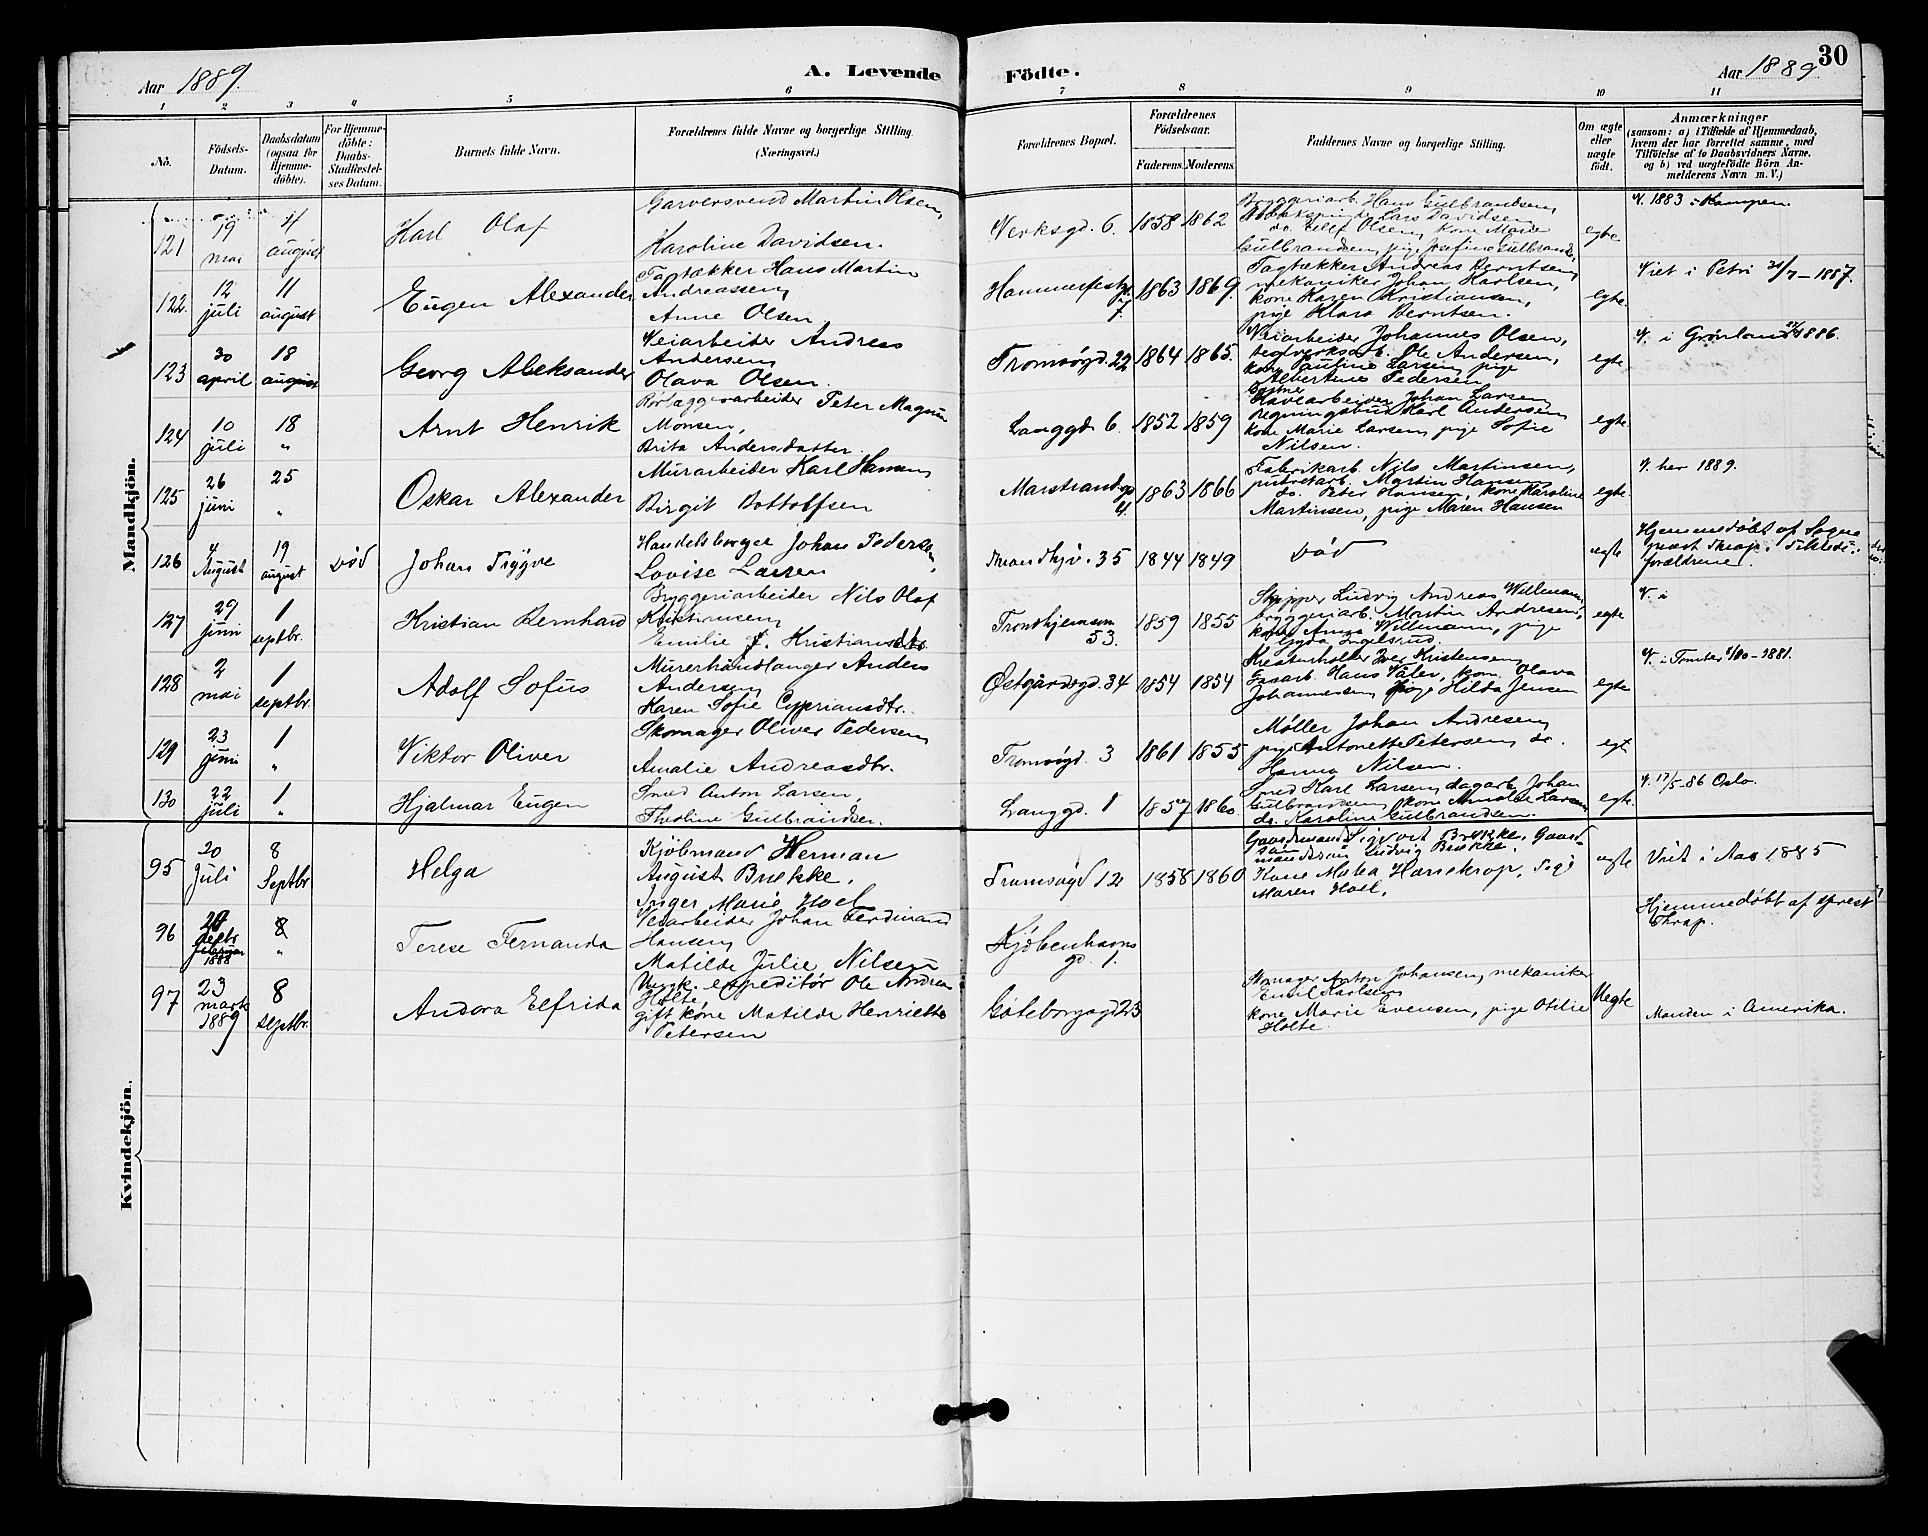 30
Aar 1889.
A. Levende Födte.
Aar 1889
1 2 3 4 5 6 7 8 9 10 11
No.
Födsels-
Datum.
Daabsdatum
(ogsaa for
Hjemme-
döbte).
For Hjemme-
döbte:
Daabs-
Stadfæstel-
ses Datum.
Barnets fulde Navn.
Forældrenes fulde Navne og borgerlige Stilling.
(Næringsvei.)
Forældrenes Bopæl.
Forældrenes
Födselsaar.
Faderens. Moderens.
Faddernes Navne og borgerlige Stilling.
Om ægte
eller
uægte
født.
Anmærkninger
(saasom: a) i Tilfælde af Hjemmedaab,
hvem der har forrettet samme, med
Tilføielse af to Daabsvidners Navne.
og b) ved uægtefödte Börn An-
melderens Navn m. V.)
Mandkjön.
121
19
mai
4
august
Karl Olaf
Garversvend Martin Olsen,
Karoline Davidsen.
Verksgd. 6.
1858 1862
Bryggeriarb. Hans Gulbrandsen,
Lars Davidsen
do. Olsen, kone Marie
Gulbrandsen, pige Josefine
egte
V. 1883 i Kampen.
122.
12
juli
11
august
Eugen Alexander
Tagtækker Hans Martin
Andreassen,
Anne Olsen.
Hammerfestgd.
7.
1863 1869.
Tagtækker Andreas Berntsen,
mekaniker Johan Karlsen,
kone Karen Kristiansen,
pige Klara Berntsen.
egte.
Viet i Petri 31/7-1887.
123
30
april
18
august
Georg Aleksander
Veiarbeider Andreas
Andersen,
Olava Olsen.
Tromsøgd. 22
1864 1865.
Veiarbeider Johannes Olsen,
teglverksarb. Ole Andersen,
kone Pauline Larsen, pige
Albertine Pedersen
egte
V. i Grønland 1886.
124
10
juli
18
"
Arnt Henrik
Rörlæggerarbeider Peter Magnus
Monsen,
Brita Andersdatter.
Langgd. 6.
1852 1859
Havearbeider Johan Larsen,
regningsbud Karl Andersen,
kone Marie Larsen, pige Sofie
Nilsen.
egte.
125
26
juni
25
"
Oskar Alexander
Murarbeider Karl Hansen,
Birgit Bottolfsen
Marstrandgd
4.
1863 1866
Fabrikarb. Nils Martinsen,
Martin Hansen,
do. Peter Hansen, kone Karoline
Martinsen, pige Maren Hansen
egte.
V. her 1889.
126
4
August
19
august
Död
Johan Trygve
Handelsborger Johan Pedersen,
Lovise Larsen
Trondhjv. 35
1844 1849
Död
egte
Hjemmedöbt af Sogne
præst Thrap. Tilstede:
forældrene.
127
29
juni
1
septbr.
Kristian Bernhard
Bryggeriarbeider Nils Olaf
Kristiansen,
Emilie J. Kristiansdtr.
Trondhjemsvn
53.
1859 1855
Skipper Ludvig Andreas Willmann,
bryggeriarb. Martin Andresen,
kone Anna Willmann, pige
Gyda Ingelsrud.
egte
V. i
128
2
mai
1
septbr.
Adolf Sofus
Murerhåndlanger Anders
Andersen,
Karen Sofie Cypriansdtr.
Østgårdsgd. 34
1854 1854
Iver Kristensen,
Gasarb. Hans Våler, kone Olava
Johannessen, pige Hilda Jensen
egte
129
23
juni
1
"
Viktor Oliver
Skomager Oliver Pedersen,
Amalie Andreasdtr.
Tromsøgd. 3
1861 1855
Møller Johan Andresen,
pige Antonette Petersen, do.
Hanna Nilsen.
egt
130
22
juli
1
"
Hjalmar Eugen
Smed Anton Larsen,
Theoline Gulbrandsen.
Langgd. 1
1857 1860
Smed Karl Larsen, dagarb. Johan
Gulbrandsen, kone Larsen,
do. Karoline Gulbrandsen.
egte.
V. 17/5-86 Oslo.
Kvindekjön.
95
20
Juli
8
Septbr
Helga
Kjöbmand Herman
August Brekke,
Inger Marie Hoel
Tromsøgd 12
1858 1860
Gaardmand Sigvart Brekke, Gaard-
mandssøn Ludvig Brekke,
Kone Harekrop, Pige
Maren Hoel.
egte
Viet i Aas 1885
96
8
"
Terese Fernanda
Veiarbeider Johan Ferdinand
Hansen,
Matilde Julie Nilsen
Kjöbenhavns
gd. 1.
Hjemmedöbt af sprest
Thrap.
97
23
marts
1889
8
septbr.
Andora Elfrida
Ungk. expeditör Ole Andreas
Holte,
gift kone Matilde Henriette
Petersen
Göteborgsgd 23
Skomager Anton Johansen, mekaniker
Emil Karlsen,
kone Marie Evensen, pige Otilie
Holte
Uegte
Manden i Amerika.